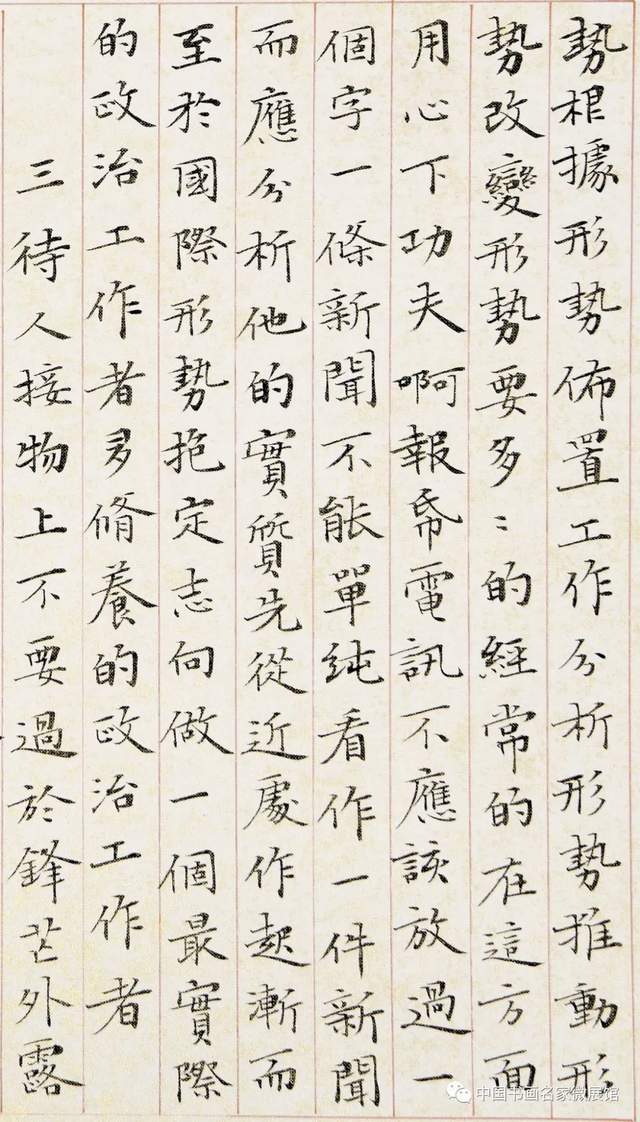 勢根據形勢佈置工作分析形勢推動形
勢改變形勢要多〻的經常的在這方面
用心下功夫啊報帋電訊不應該放過一
個字一條新聞不能單純看作一件新聞
而應分析他的實質先從近處作起漸而
至於國際形勢抱定志向做一個最實際
的政治工作者多脩養的政治工作者
三待人接物上不要過於鋒芒外露
中国书画名家微展馆